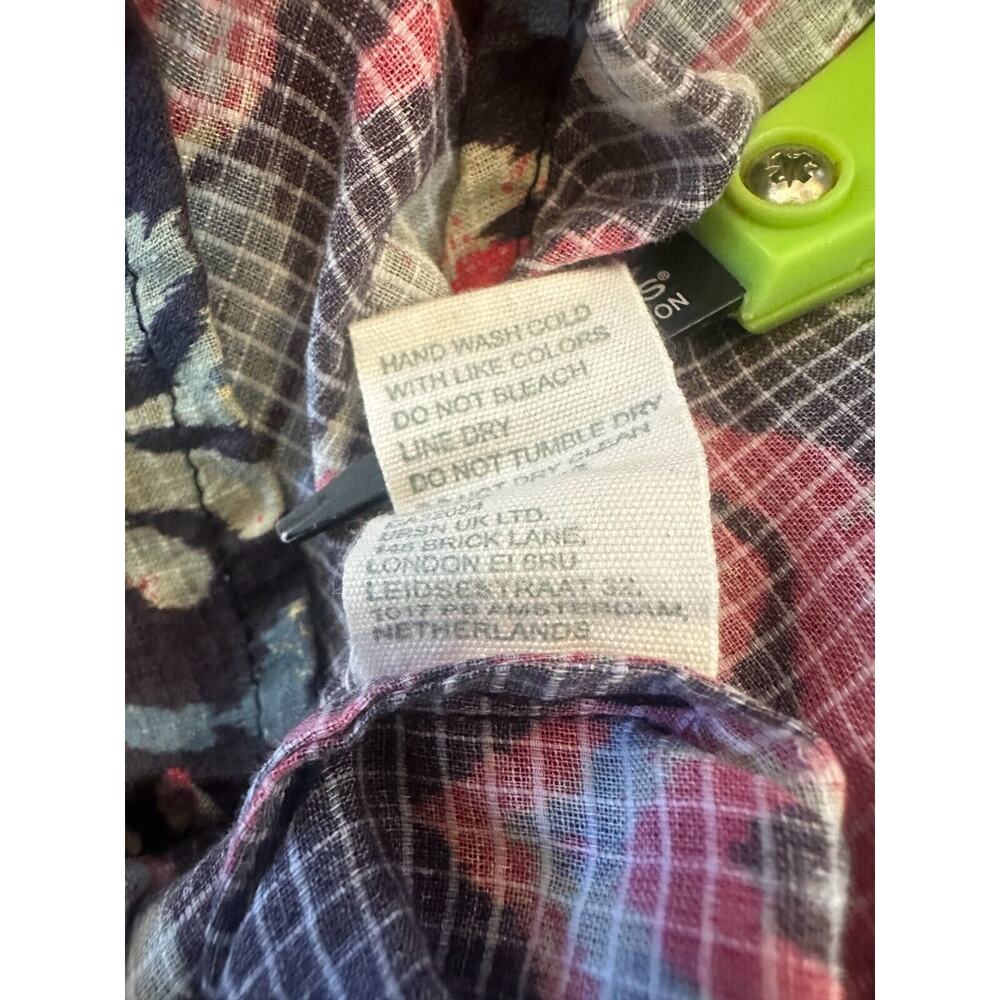 S®
ON
HAND WASH COLD
WITH LIKE COLORS
DO NOT BLEACH
LINE DRY
DO NOT TUMBLE DRY
DRY CLEAN
UK LTD.
BRICK LANE,
LONDON
LEIDSESTRAAT 32,
1017 PB AMSTERDAM,
NETHERLANDS